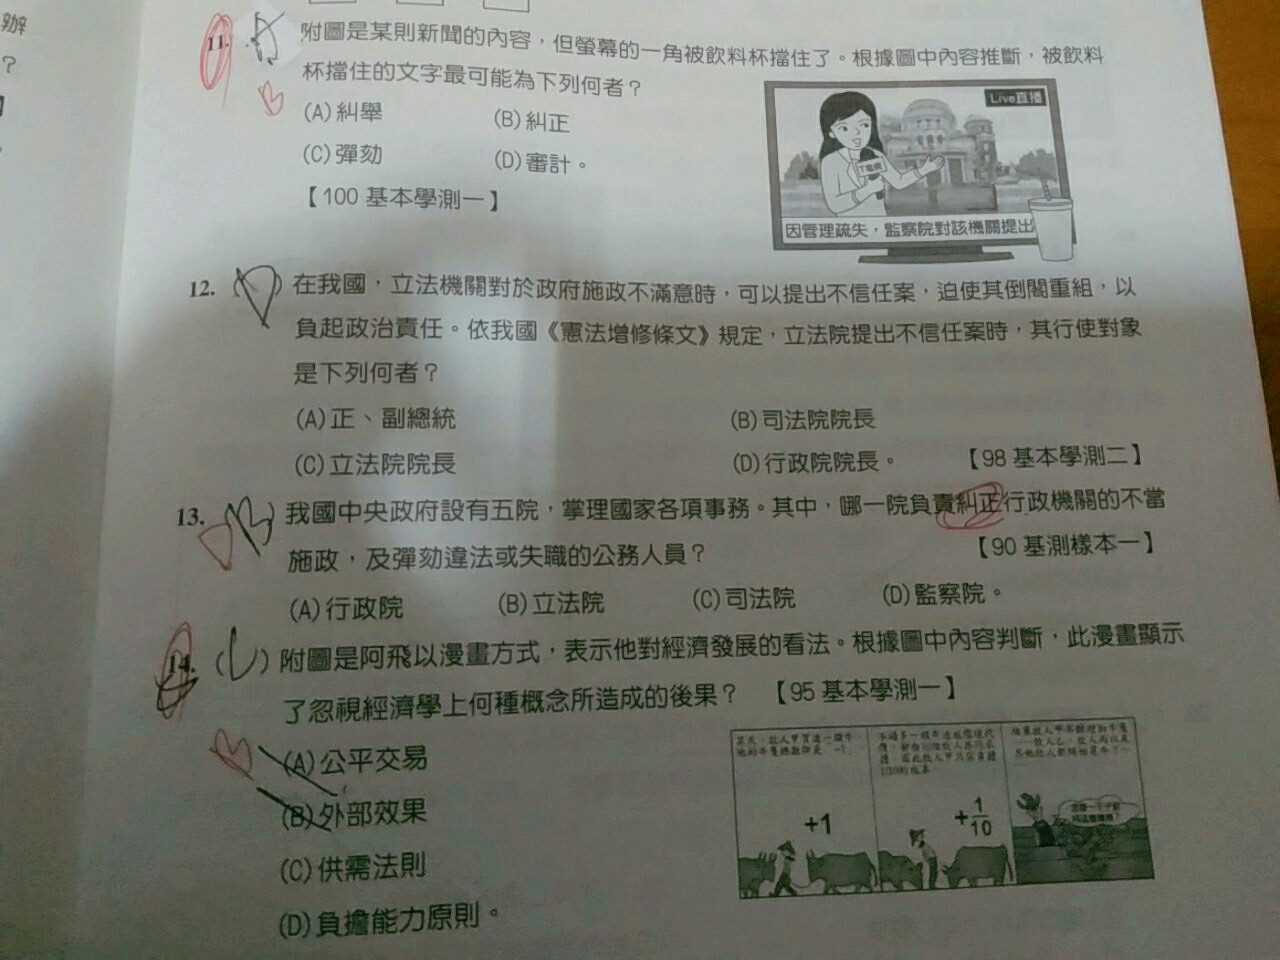 辦
?
11.
附圖是某則新聞的內容，但螢幕的一角被飲料杯擋住了。根據圖中內容推斷，被飲料
杯擋住的文字最可能為下列何者？
(A)糾舉
(B)糾正
(C)彈劾
(D)審計。
【100 基本學測一】
Live直播
因管理疏失，監察院對該機關提出
12. ( ) 在我國，立法機關對於政府施政不滿意時，可以提出不信任案，迫使其倒閣重組，以
負起政治責任。依我國《憲法增修條文》規定，立法院提出不信任案時，其行使對象
是下列何者？
(A)正、副總統
(B)司法院院長
(C)立法院院長
(D)行政院院長。
【98 基本學測二】
13. ) 我國中央政府設有五院，掌理國家各項事務。其中，哪一院負責糾正行政機關的不當
施政，及彈劾違法或失職的公務人員？
【90 基測樣本一】
(A)行政院
(B)立法院
(C)司法院
(D)監察院。
14. ( ) 附圖是阿飛以漫畫方式，表示他對經濟發展的看法。根據圖中內容判斷，此漫畫顯示
了忽視經濟學上何種概念所造成的後果？ 【95 基本學測一】
(A)公平交易
(B)外部效果
(C)供需法則
(D)負擔能力原則。
+1
+1/10